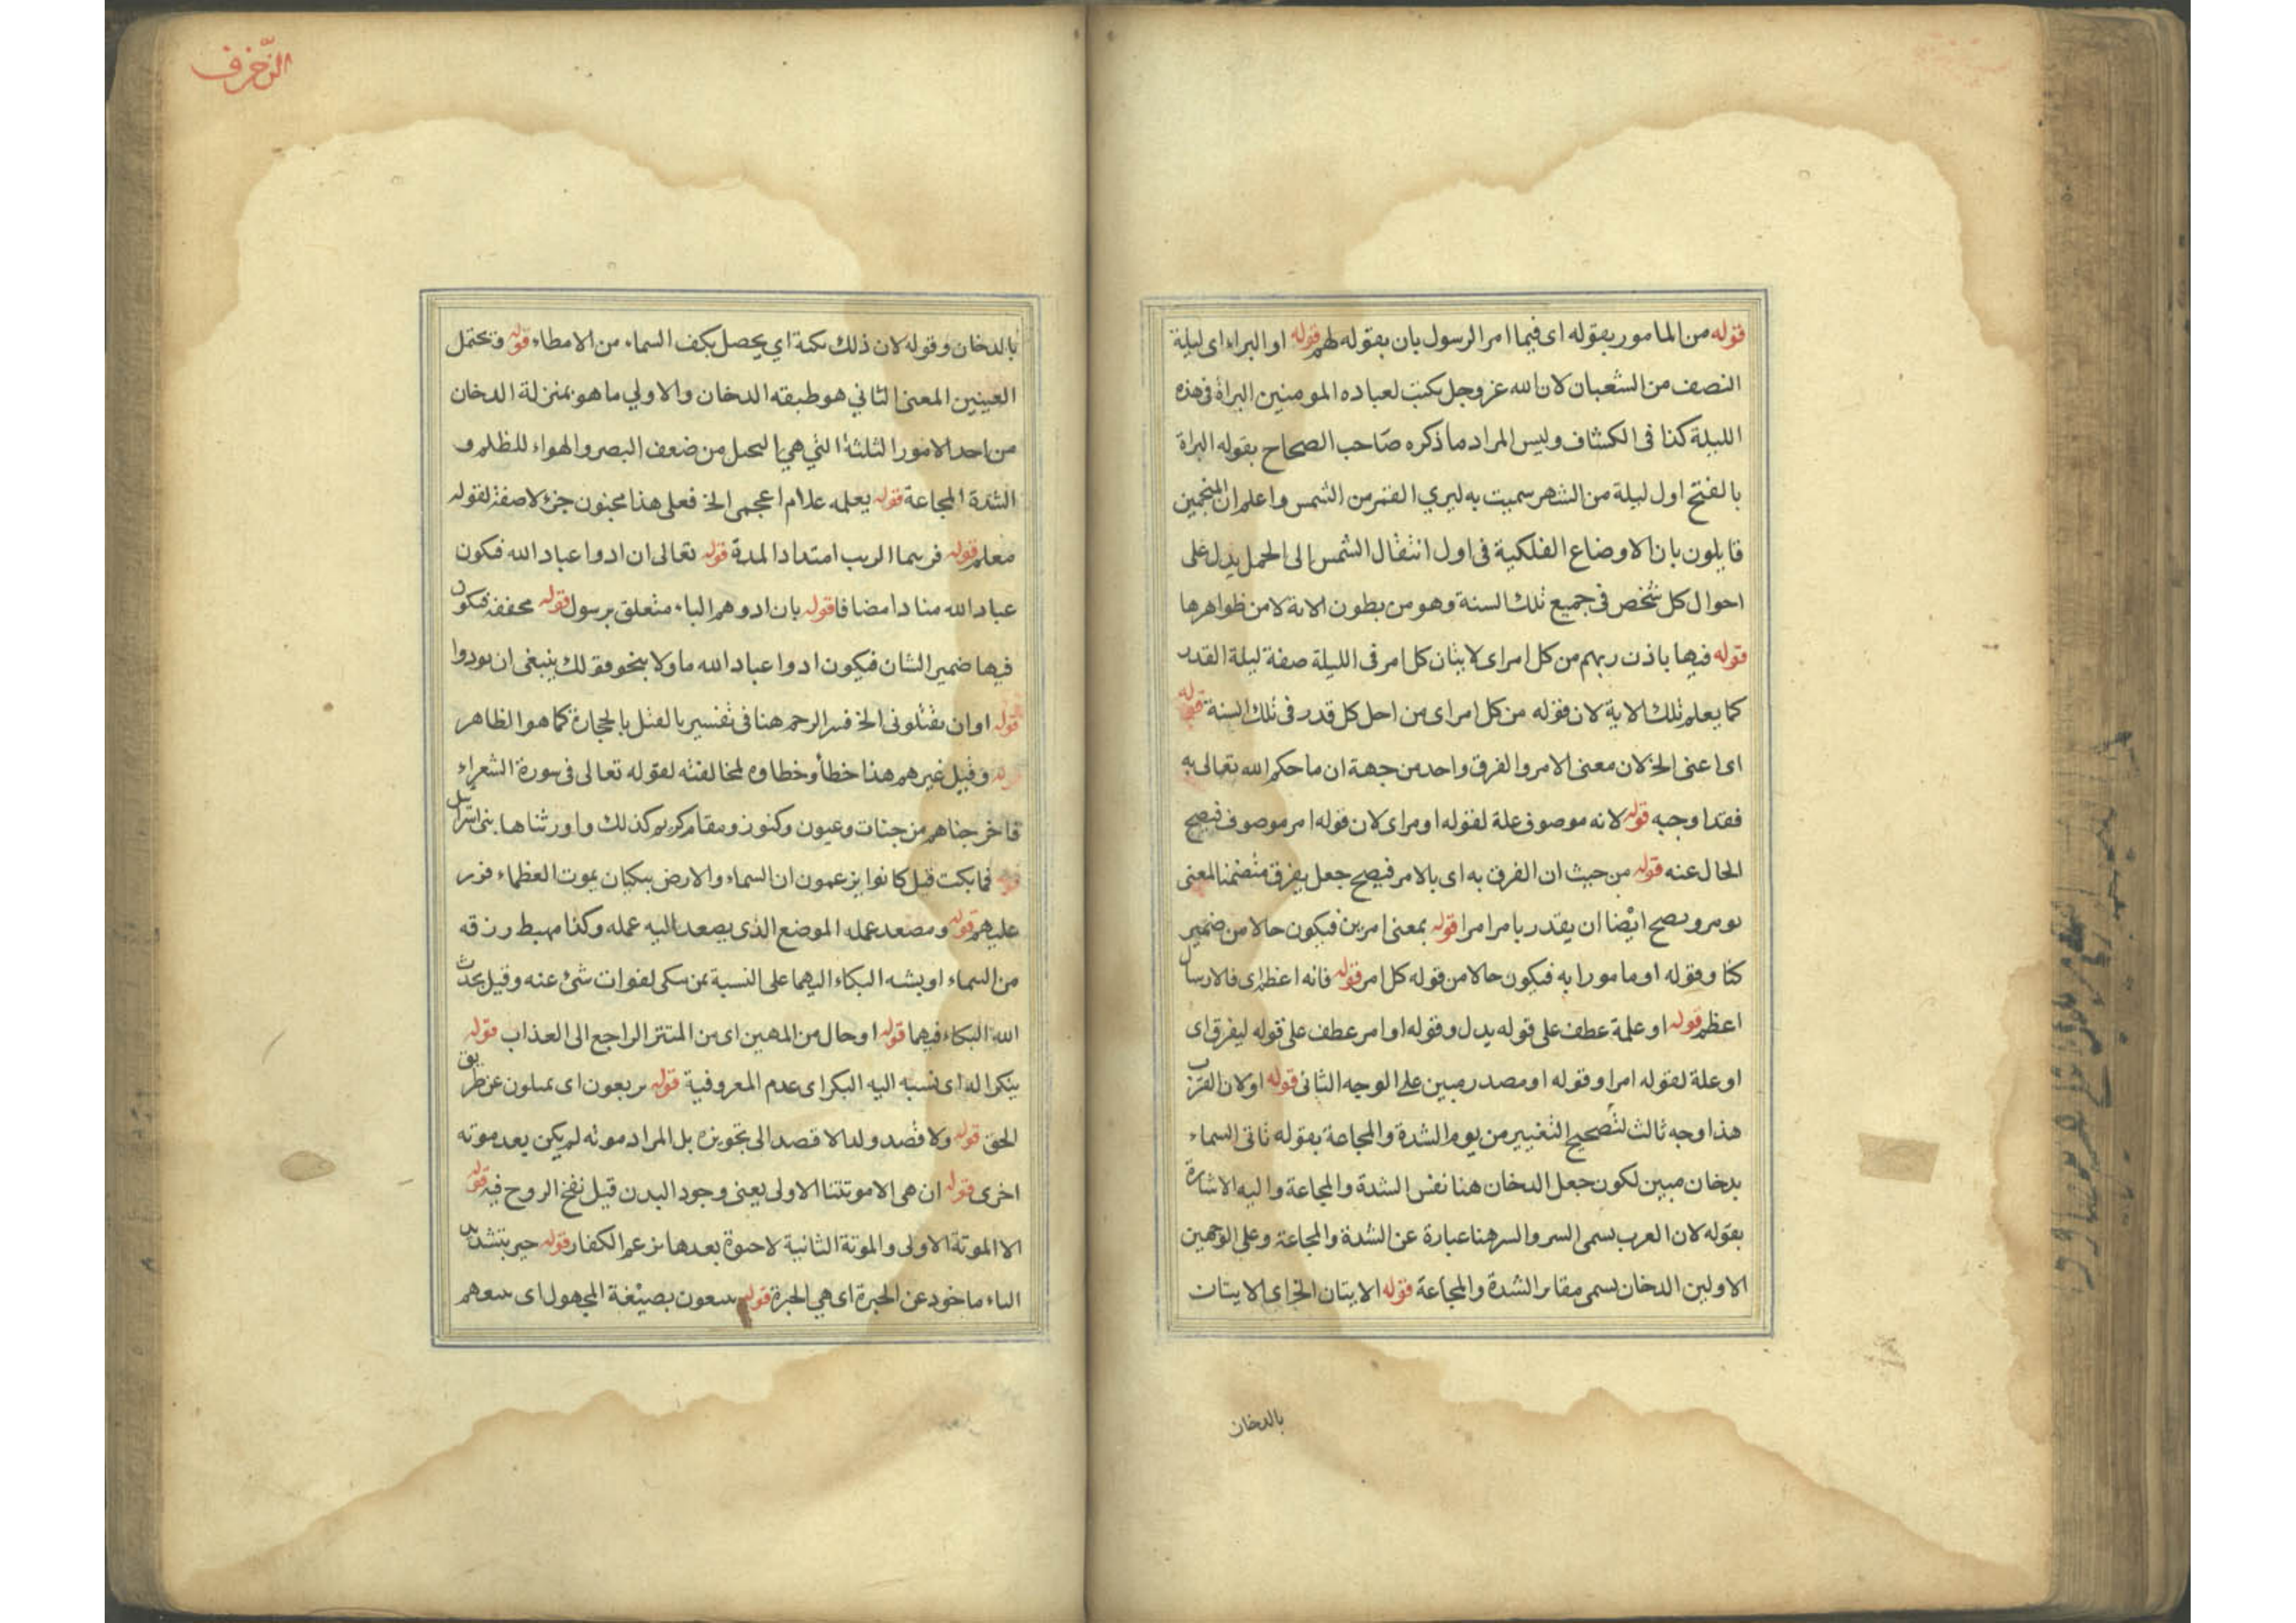 قوله من المامور بقوله اى فيما امر الرسول بان بقوله لهم قوله او البراء اى ليلة
النصف من الشعبان لان الله عز وجل يكتب لعباده المومنين البراة فى هذه
الليلة كذا فى الكشاف وليس المراد ما ذكره صاحب الصحاح بقوله البراة
بالفتح اول ليلة من الشهر سميت به لبرى القمر من الشمس واعلم ان المنجمين
قايلون بان الاوضاع الفلكية فى اول انتقال الشمس الى الحمل يدل على
احوال كل شخص فى جميع تلك السنة وهو من بطون الاية لا من ظواهرها
قوله فيها باذن ربهم من كل امر اى لا بيان كل امر فى الليلة صفة ليلة القدر
كما يعلم تلك الاية لان قوله من كل امر اى من اجل كل قدر فى تلك السنة قوله
اى اعنى الخ لان معنى الامر والفرق واحد من جهة ان ما حكم الله تعالى به
فقد اوجبه قوله لانه موصوف علة لقوله او مراى لان قوله امر موصوف فيصح
الحال عنه قوله من حيث ان الفرق به اى بالامر فيصح جعل يفرق متضمنا لمعنى
يومر ويصح ايضا ان يقدر بامر امرا قوله بمعنى امرين فيكون حالا من ضمير
كنا وقوله او مامورا به فيكون حالا من قوله كل امر قوله فانه اعظم اى فالارسال
اعظم قوله او علمة عطف على قوله بدل وقوله او امر عطف على قوله ليفرق اى
او علة لقوله امرا وقوله او مصدر مبين على الوجه الثانى قوله او لان القرب
هذا وجه ثالث لتصحيح التعبير من يوم الشدة والمجاعة بقوله تاتى السماء
بدخان مبين لكون جعل الدخان هنا نفس الشدة والمجاعة واليه الاشارة
بقوله لان العرب يسمى السر والسر هنا عبارة عن الشدة والمجاعة وعلى الوجهين
الاولين الدخان يسمى مقام الشدة والمجاعة قوله الايتان الخ اى الايتات
بالدخان
الزخرف
بالدخان وقوله لان ذلك نكتة اي يحصل بكف السماء من الامطاء قوله وتحتمل
العينين المعنى الثاني هو طبقته الدخان والاولي ما هو بمنزلة الدخان
من احد الامور الثلثة التي هي التحمل من ضعف البصر والهواء للظلم و
الشدة المجاعة قوله يعلمه علام اعجمى الخ فعلى هذا مجنون جزء لا صفة لقوله
معلم قوله فرسما الريب امتداد المدة قوله تعالى ان ادوا عباد الله فيكون
عباد الله منادا مضافا قوله بان ادوهم الباء متعلق برسول قوله مخففة فيكون
فيها ضمير الشان فيكون ادوا عباد الله ماولا بنحو فولك ينبغى ان يودوا
قوله اوان يقتلونى الخ فسر الرجم هنا فى تفسير بالقتل بالحجارة كما هو الظاهر
قوله وقيل غيرهم هذا خطأ وخطاوه لمخالفته لقوله تعالى فى سورة الشعراء
فاخرجناهم من جنات وعيون وكنوز ومقام كريم كذلك واورثناها بنى اسرائيل
قوله فما بكت قيل كانوا يزعمون ان السماء والارض يبكيان بموت العظماء فرد
عليهم قوله ومصعد عمله الموضع الذى يصعد اليه عمله وكذا مهبط رزقه
من السماء او يشبه البكاء اليهما على النسبة بمن بكى لفوات شئ عنه وقيل يحدث
الله البكاء فيهما قوله او حال من المهين اى من المستتر الراجع الى العذاب قوله
ينكرا له اى نسبه اليه البكر اى عدم المعروفية قوله يربعون اى يميلون عن طريق
الحق قوله ولا قصد ولد الا قصد الى تجويزه بل المراد موته لم يكن بعد موته
اخرى قوله ان هى الا موتتنا الاولى يعنى وجود البدن قبل نفخ الروح فيه قوله
الا الموتة الاولى والموتة الثانية لا حيوة بعدها بزعم الكفار قوله حير بتشديد
الباء ماخوذ عن الحيرة اى هى الحيرة قوله يسعون بصيغة المجهول اى يسعهم